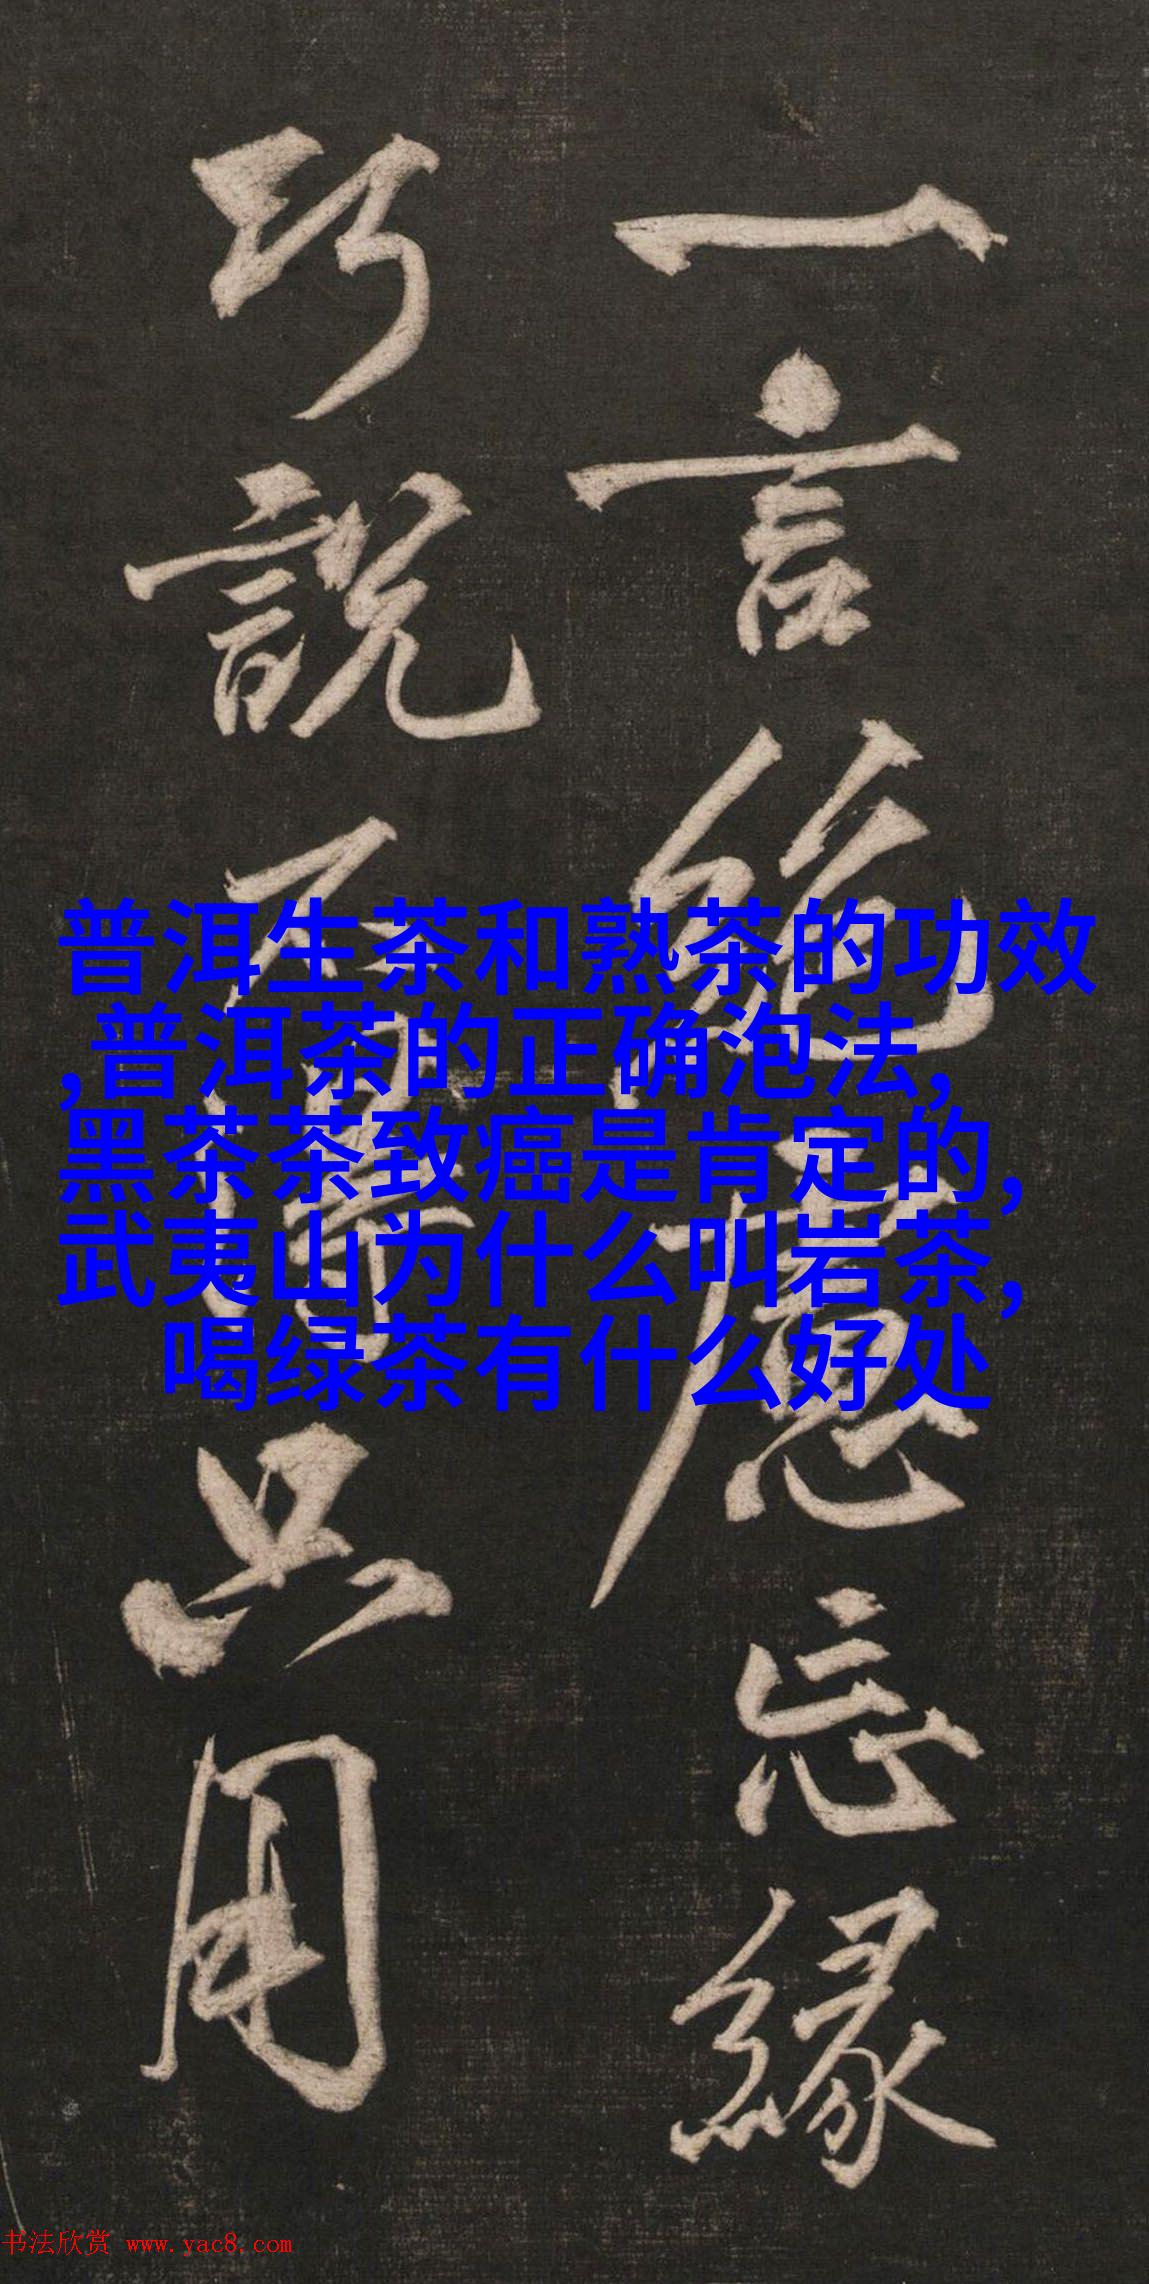 一言絶慮忘緣
巧說不得只用
普洱生茶和熟茶的功效
,普洱茶的正确泡法,
黑茶茶致癌是肯定的,
武夷山为什么叫岩茶,
喝绿茶有什么好处
书法欣赏 www.yac8.com